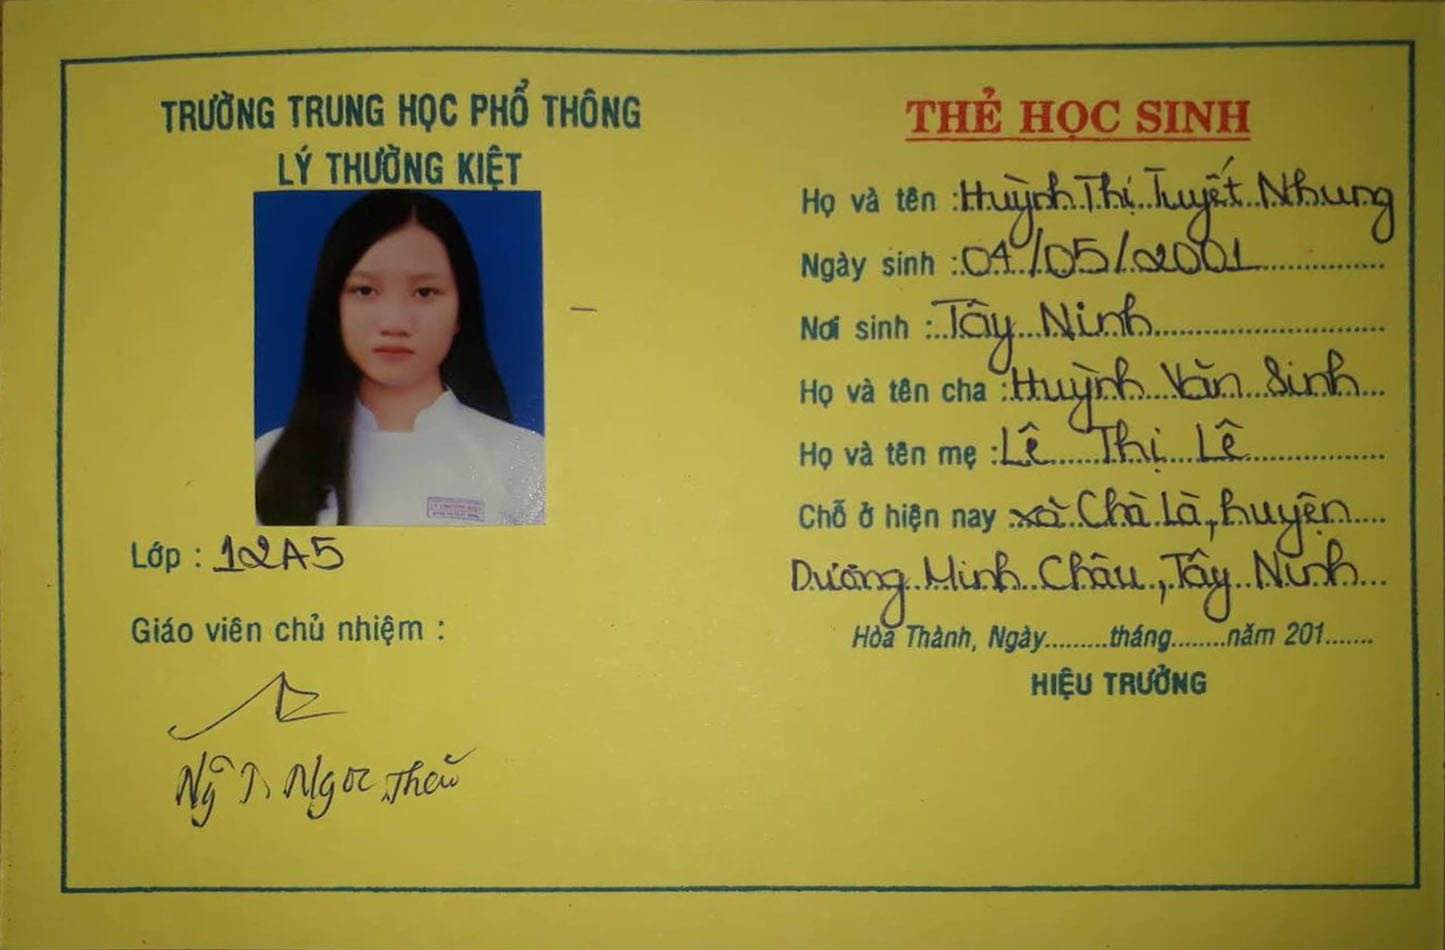 TRƯỜNG TRUNG HỌC PHỔ THÔNG
LÝ THƯỜNG KIỆT
Lớp : 12A5
Giáo viên chủ nhiệm :
Ngọc
THẺ HỌC SINH
Họ và tên : Huỳnh Thị Tuyết Nhung
Ngày sinh : 04/05/2001
Nơi sinh : Tây Ninh
Họ và tên cha : Huỳnh Văn Sinh
Họ và tên mẹ : Lê Thị Lê
Chỗ ở hiện nay xã Chà Là, huyện
Dương Minh Châu, Tây Ninh
Hòa Thành, Ngày.........tháng........năm 201.......
HIỆU TRƯỞNG